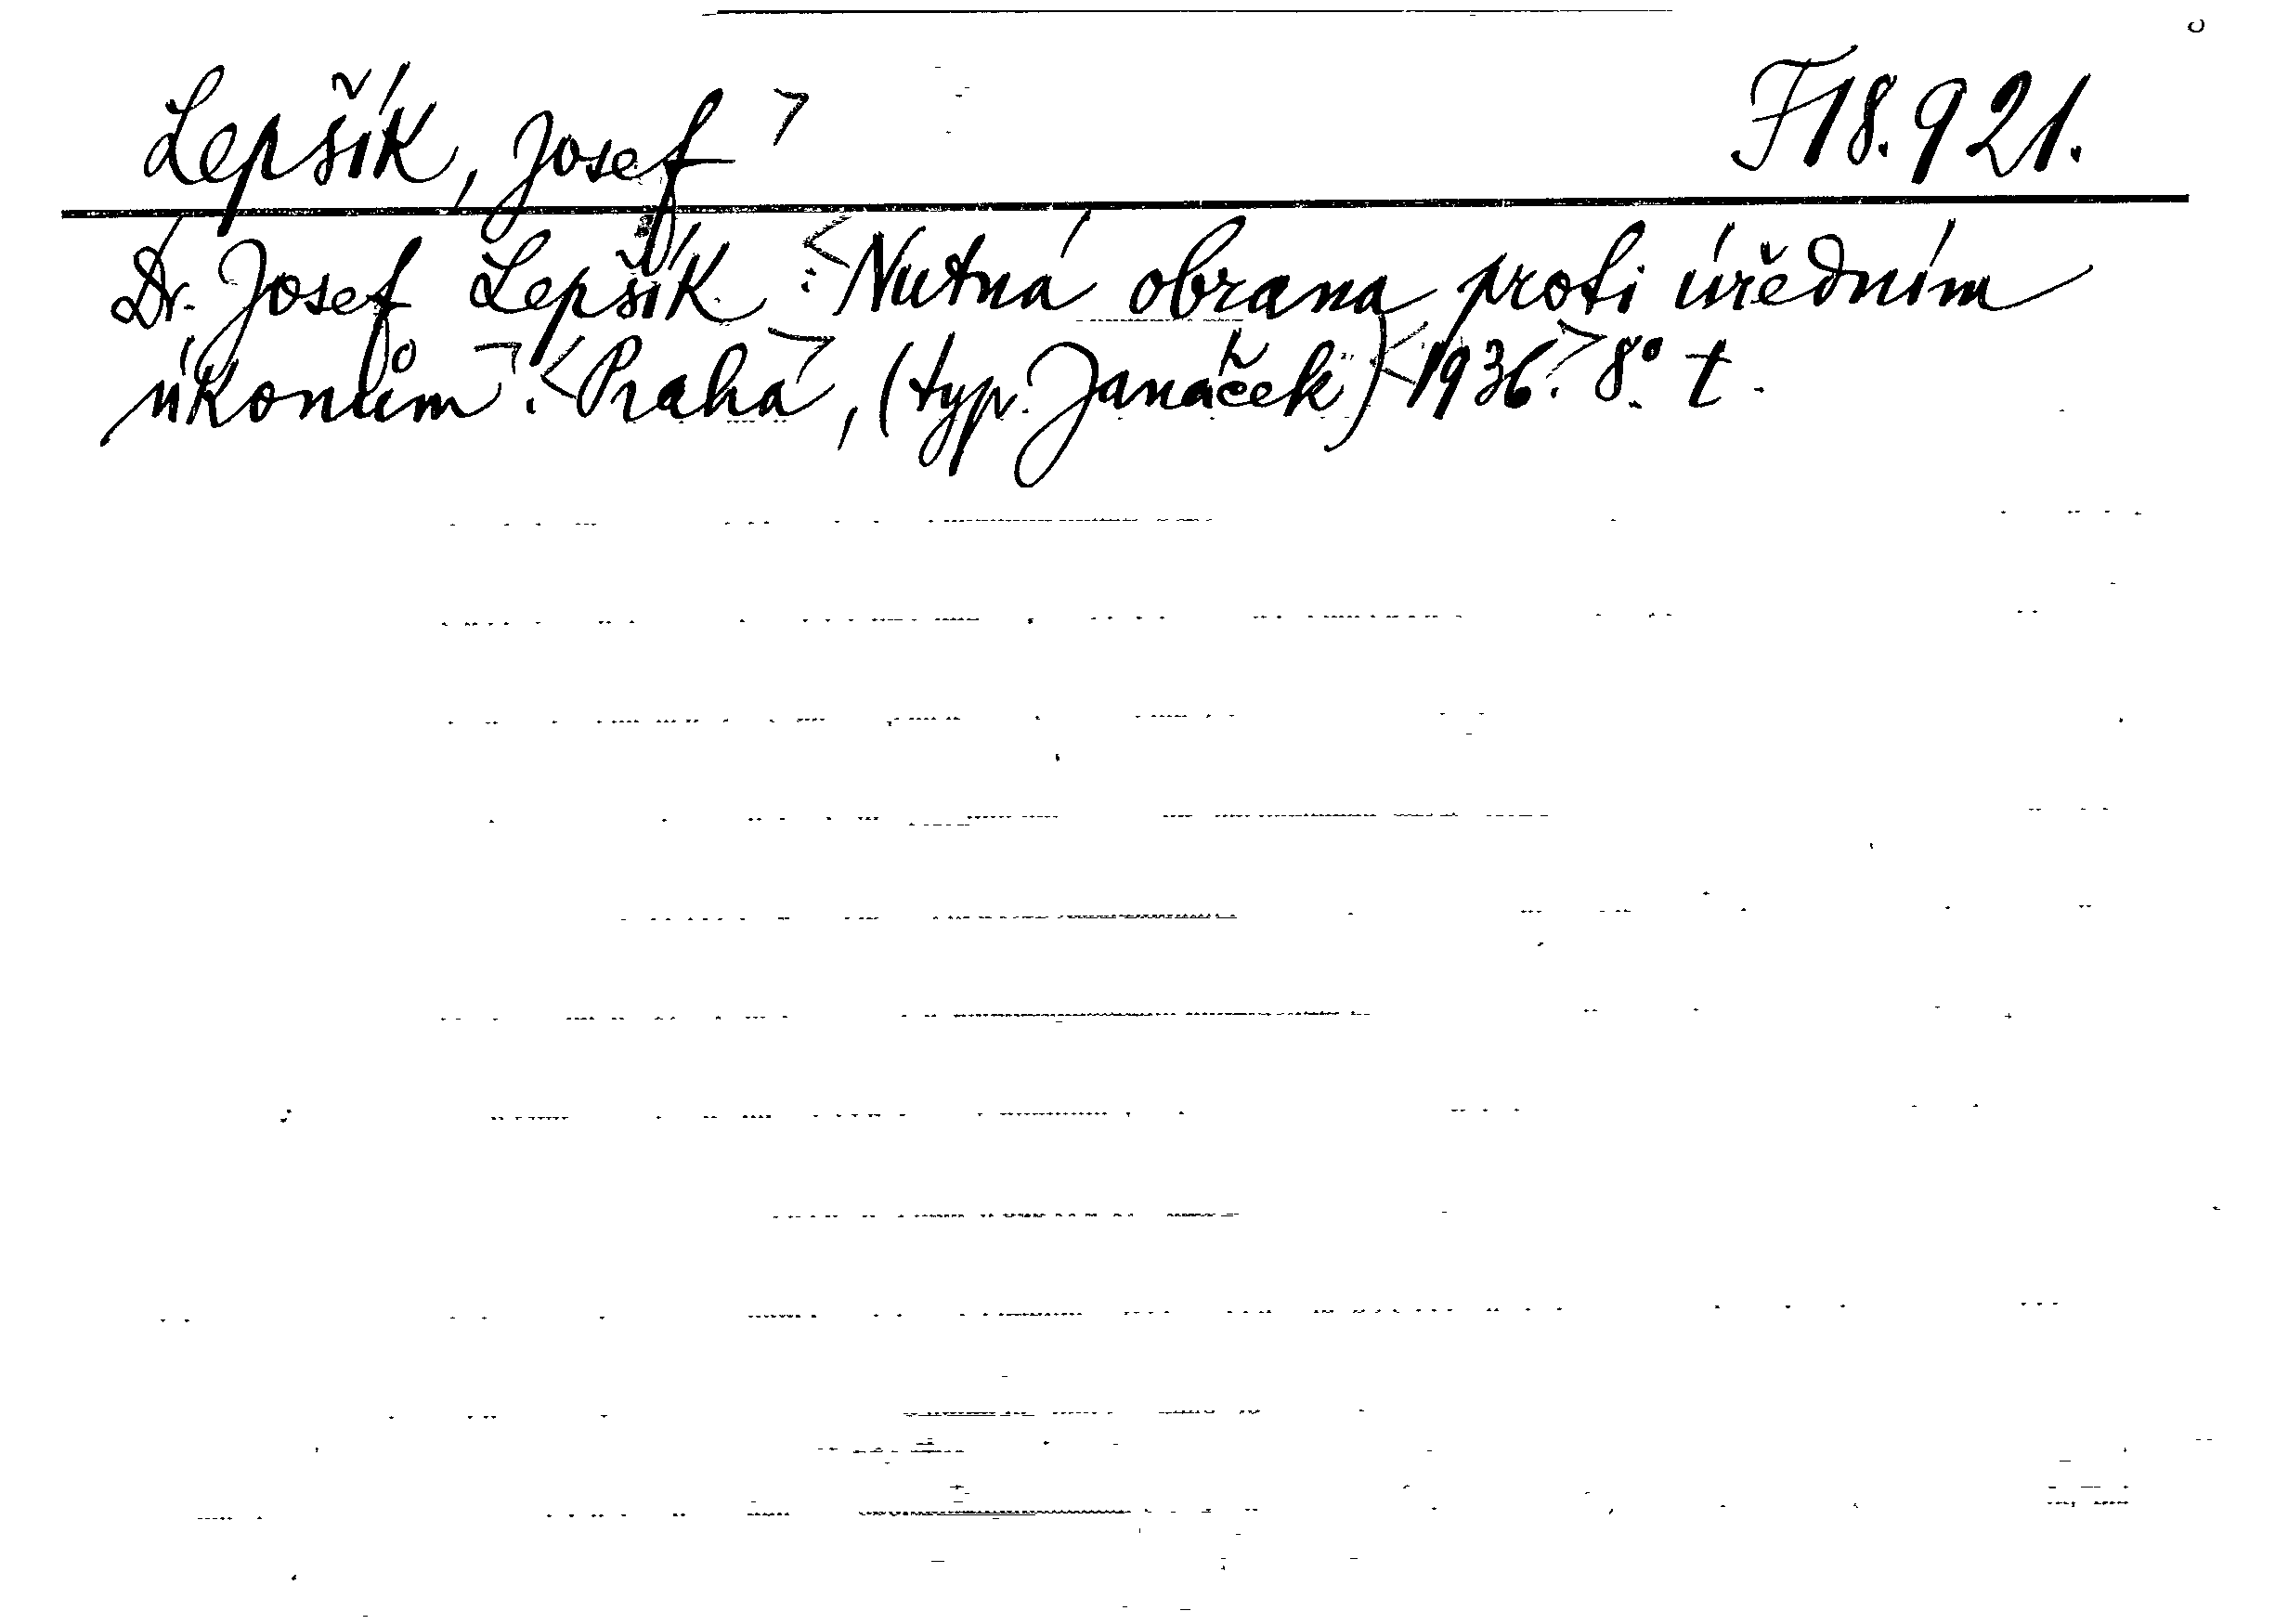 Lepšík, Josef > F 18.921.
Dr. Josef Lepšík : <Nutná obrana proti úředním
úkonům>. <Praha>, (typ. Janáček) <1936.> 8°. t.